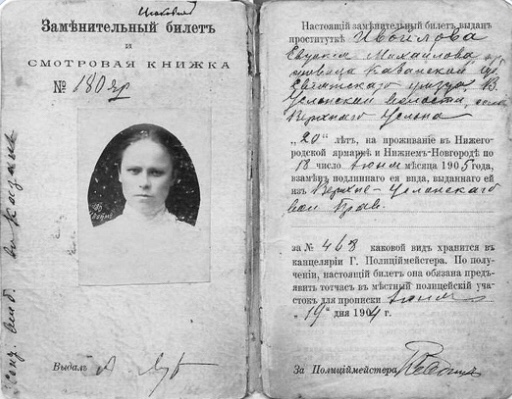 Замѣнительный билетъ
и
СМОТРОВАЯ КНИЖКА
№ 180 яр
Выдалъ
Настоящій замѣнительный билетъ выданъ
проституткѣ
Михайлова
Казанской
Свіяжскаго уѣзда, В.
Услонской волости, села
Верхняго Услона
„20“ лѣтъ, на проживаніе въ Нижего-
родской ярмаркѣ и Нижнемъ-Новгородѣ по
18 число іюня мѣсяца 1905 года,
взамѣнъ подлиннаго ея вида, выданнаго ей
изъ Верхне-Услонскаго
вол Прав.
за № 463 каковой видъ хранится въ
канцеляріи Г. Полиціймейстера. По полу-
ченіи, настоящій билетъ она обязана предъ-
явить тотчасъ въ мѣстный полицейскій уча-
стокъ для прописки іюня
„19“ дня 1904 г.
За Полиціймейстера